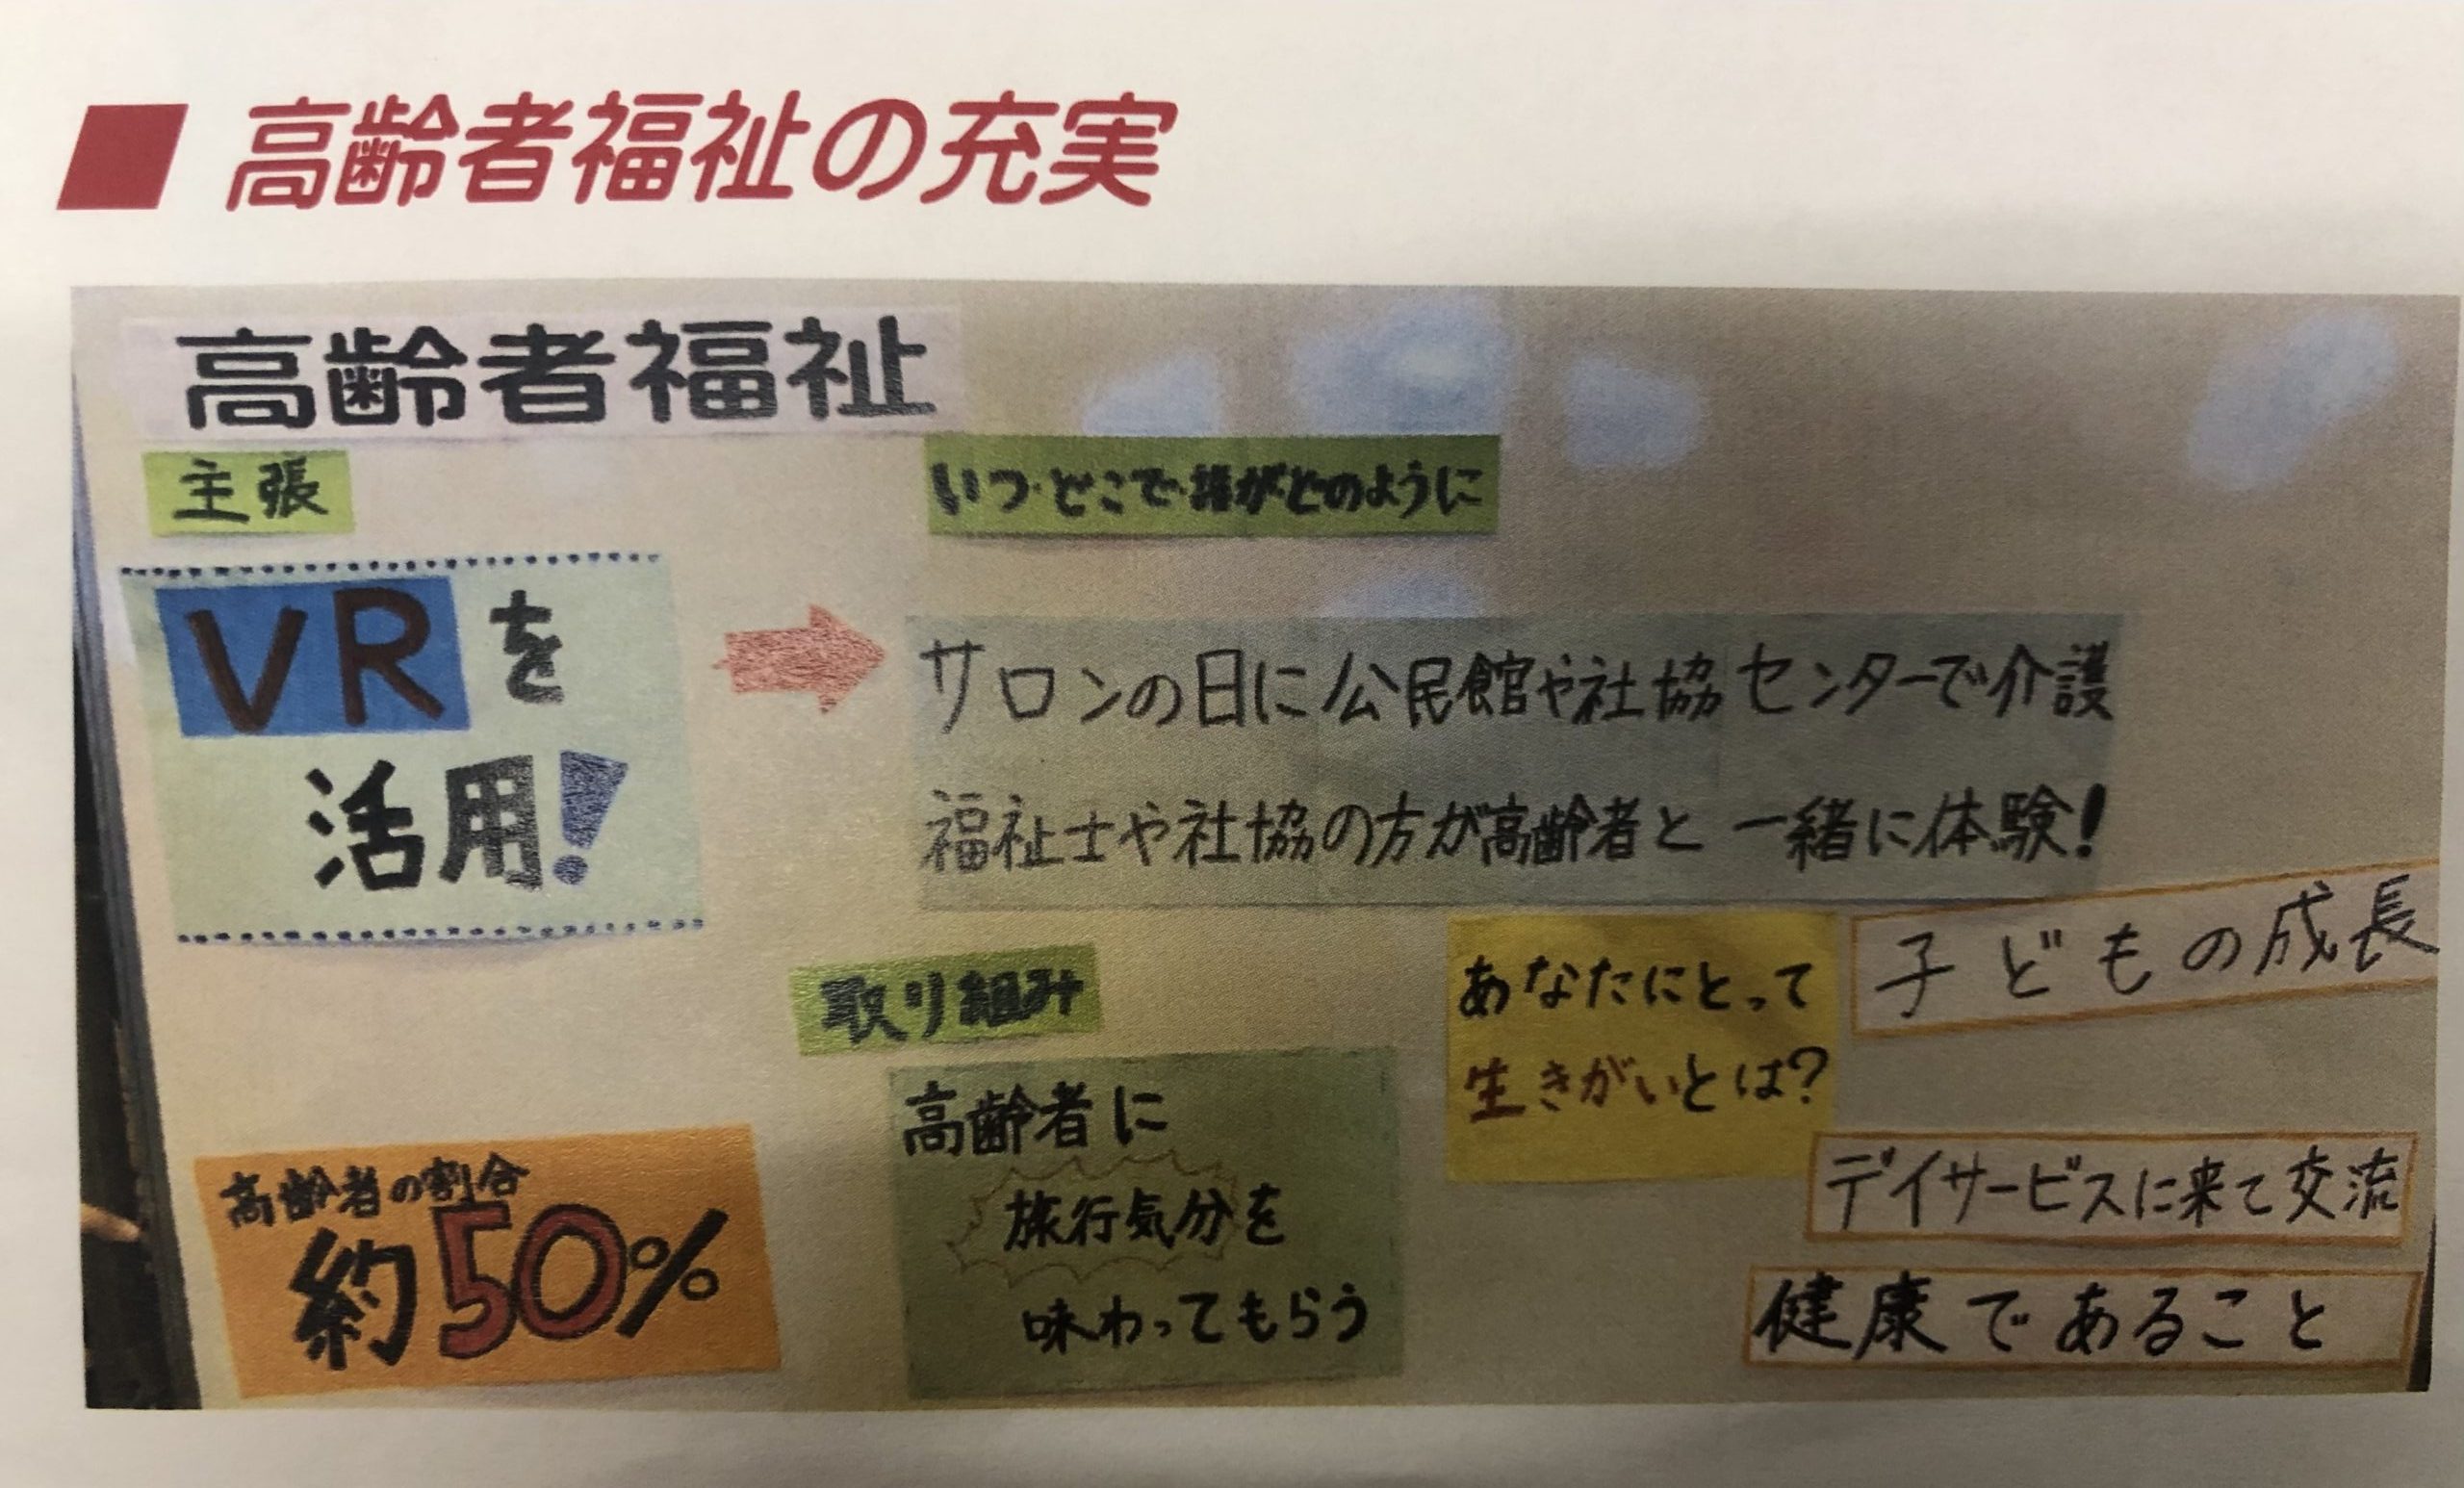 ■ 高齢者福祉の充実
高齢者福祉
主張
いつ・どこで・誰がどのように
VRを
活用!
サロンの日に公民館や社協センターで介護
福祉士や社協の方が高齢者と一緒に体験!
取り組み
高齢者に
旅行気分を
味わってもらう
高齢者の割合
約50%
あなたにとって
生きがいとは?
子どもの成長
デイサービスに来て交流
健康であること